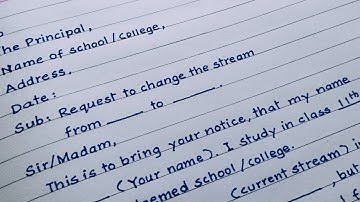 The Principal,
Name of school/college,
Address.
Date:
Sub: Request to change the stream
from ____ to ____.
Sir/Madam,
This is to bring your notice, that my name
____ (Your name). I study in class 11th
school/college.
(current stream)
____, but